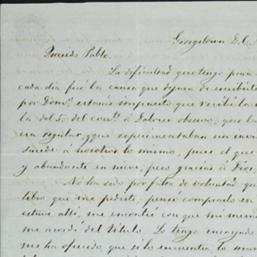 Georgetown D.C.
Querido Pablo,
La dificultad que tengo para
cada dia fué la causa que dejara de escribirte
por Dom. estaria impuesto que recibí la
la del 5 del con. á Dolores
era regular, y que experimentaban un
á nosotros lo mismo, pues el que
y abundante en nieve, pero gracias á Dios,
No ha sido por falta de voluntad que
libro que me pediste, pense comprarlo en
estuve allí, me encontré con que mi
acordé del título. Lo tengo encargado
me ha ofrecido, que si lo encuentra, lo